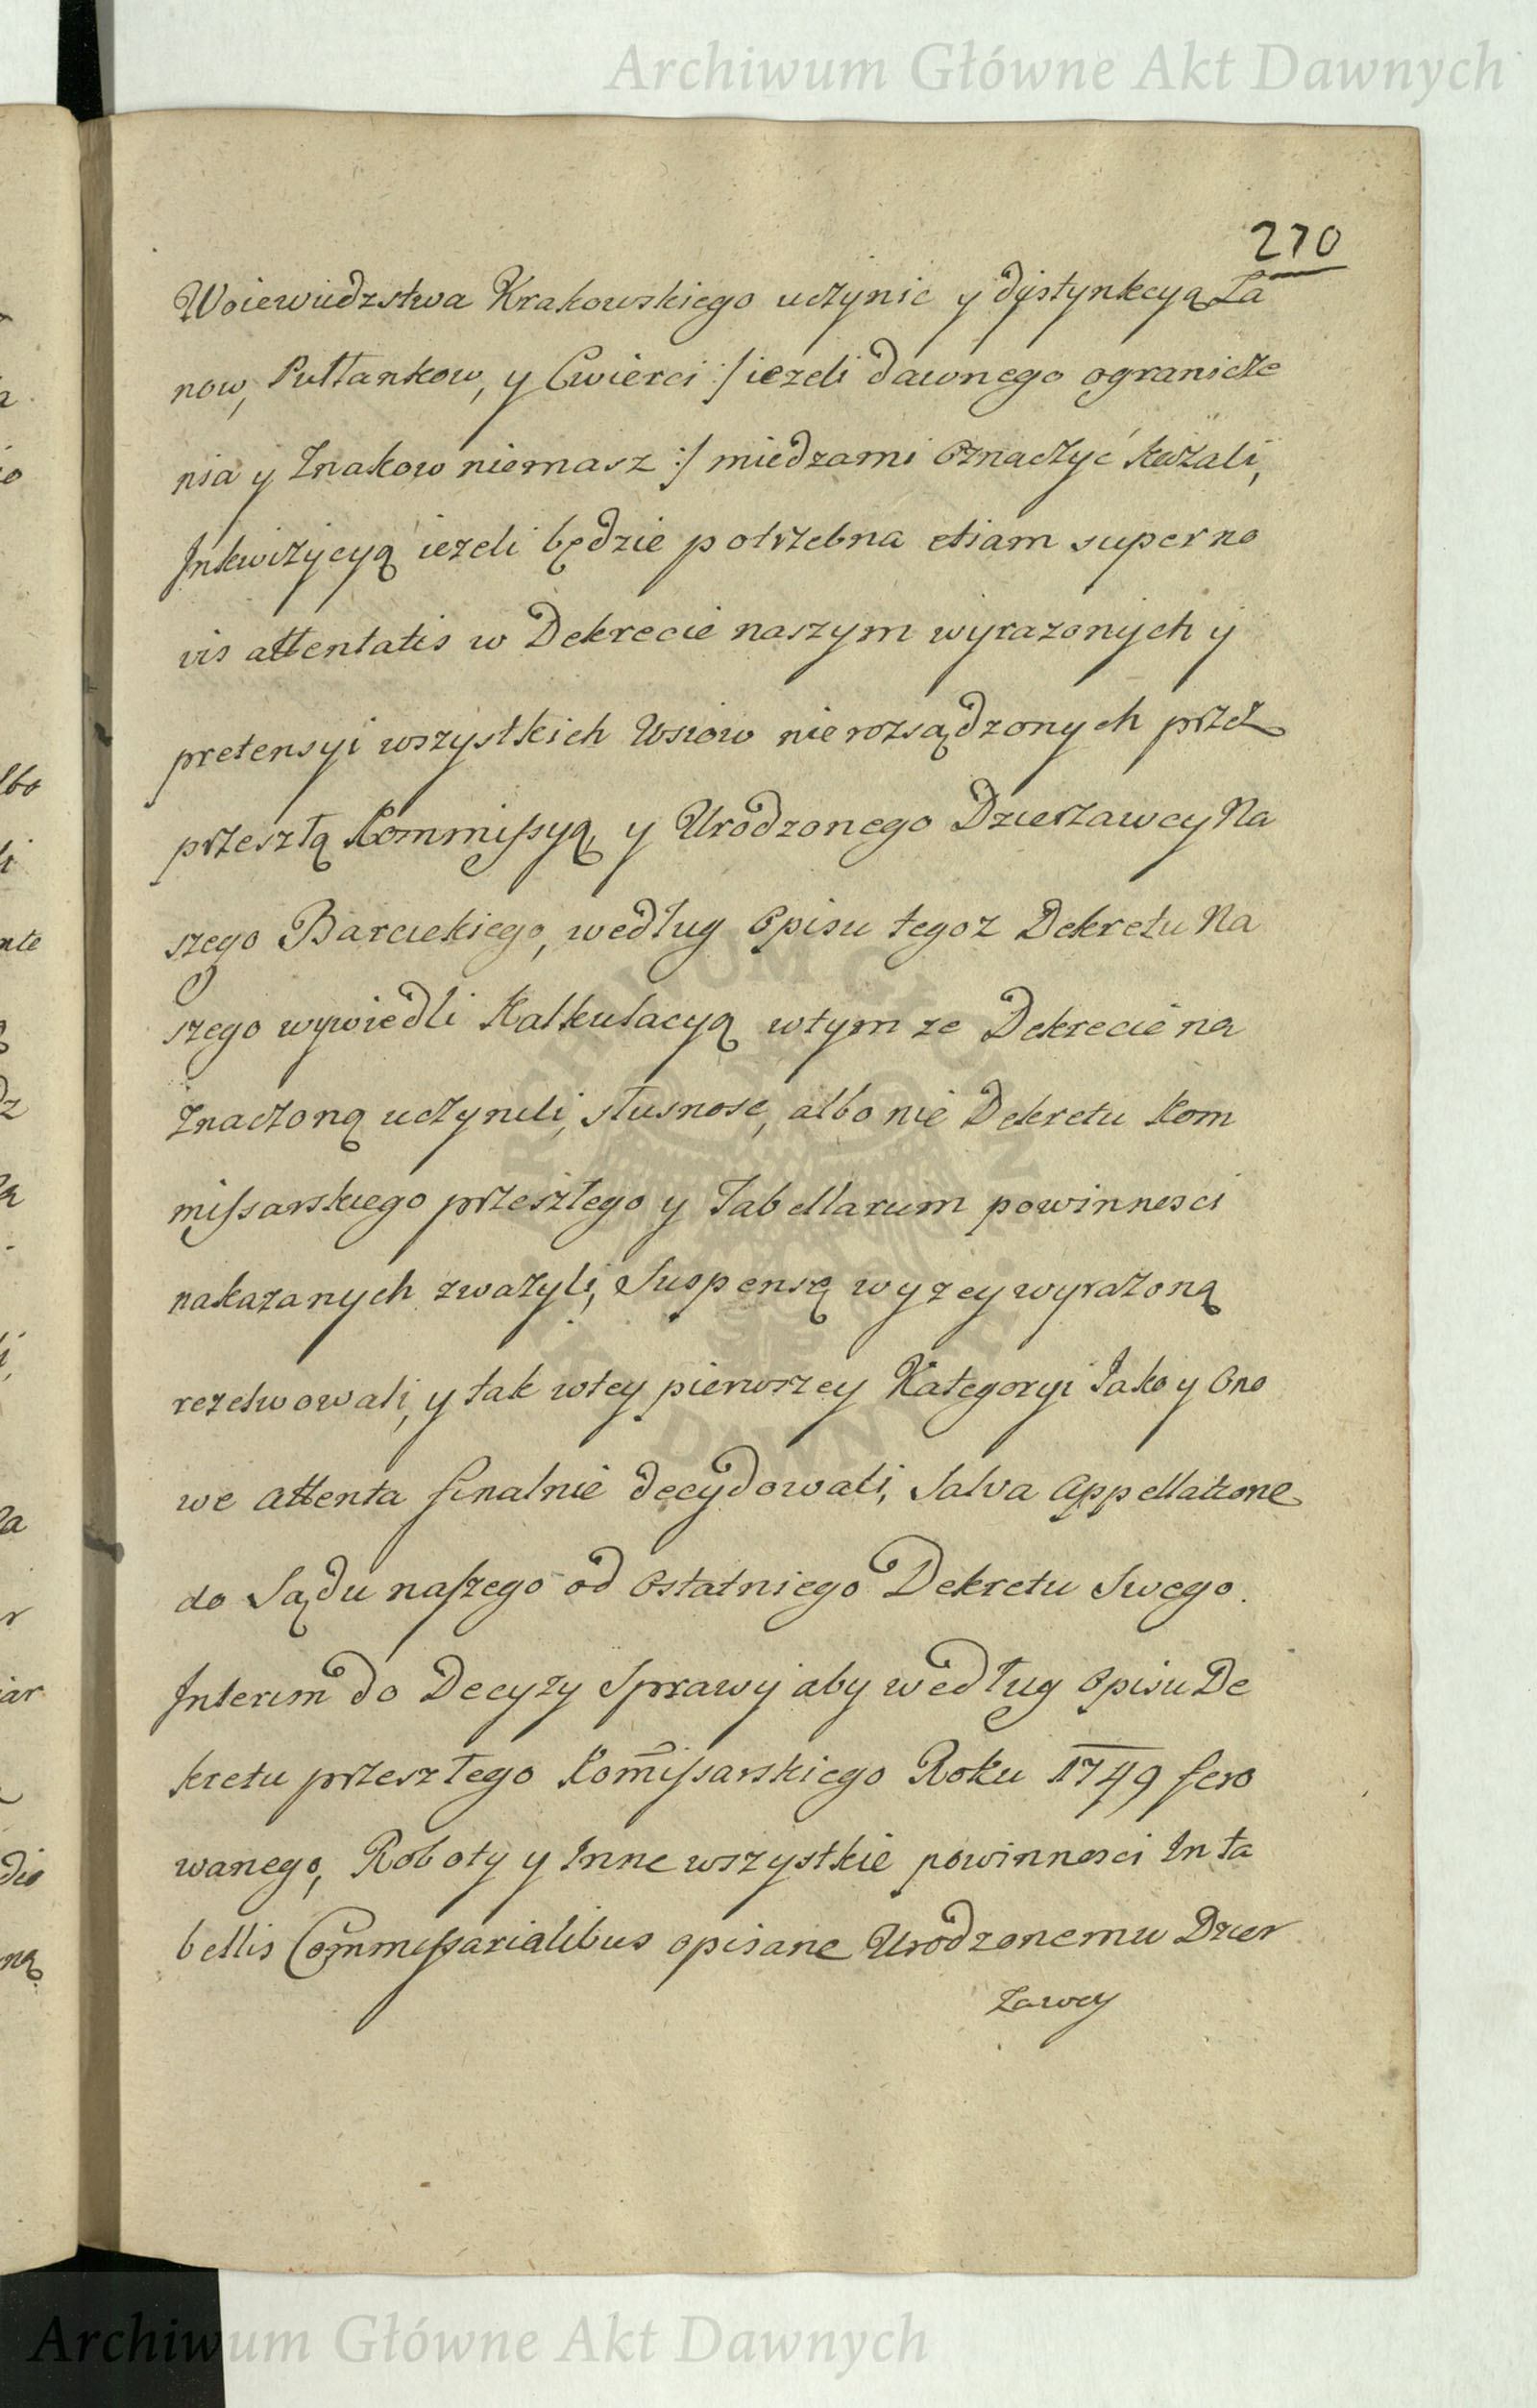 Archiwum Główne Akt Dawnych
270
Woiewudzstwa Krakowskiego uczynic y dystynkcyą Ła
now, Pułłankow, y Cwierci :/ iezeli dawnego ogranicze
nia y Znakow niemasz :/ miedzami Oznaczyć kazali,
Inkwizycyą iezeli będzie potrzebna etiam super no
vis attentatis w Dekrecie naszym wyrazonych y
pretensyi wszystkich Wsiow nierozsądzonych przez
przeszłą Kommissyą, y Urodzonego Dzierzawcy Na
szego Barckiego, według Opisu tegoz Dekretu Na
szego wywiedli Kalkulacyą wtym ze Dekrecie na
znaczoną uczynili, słusnosc, albo nie Dekretu Kom
missarskiego przeszłego y Tabellarum powinnosci
nakazanych zwazyli, Suspensę wyzey wyrazoną
rezelwowali, y tak wtey pierwszey Kategoryi Jako y Ono
we attenta finalnie decydowali, Salva Appellatione
do Sądu naszego od Ostatniego Dekretu Swego.
Interim do Decyzy Sprawy aby według Opisu De
kretu przeszłego Kom̃issarskiego Roku 1749 fero
wanego, Roboty y Inne wszystkie powinnosci In ta
bellis Commissarialibus opisane Urodzonemu Dzier
zawcy
ARCHIWUM GŁÓWNE AKT DAWNYCH
Archiwum Główne Akt Dawnych